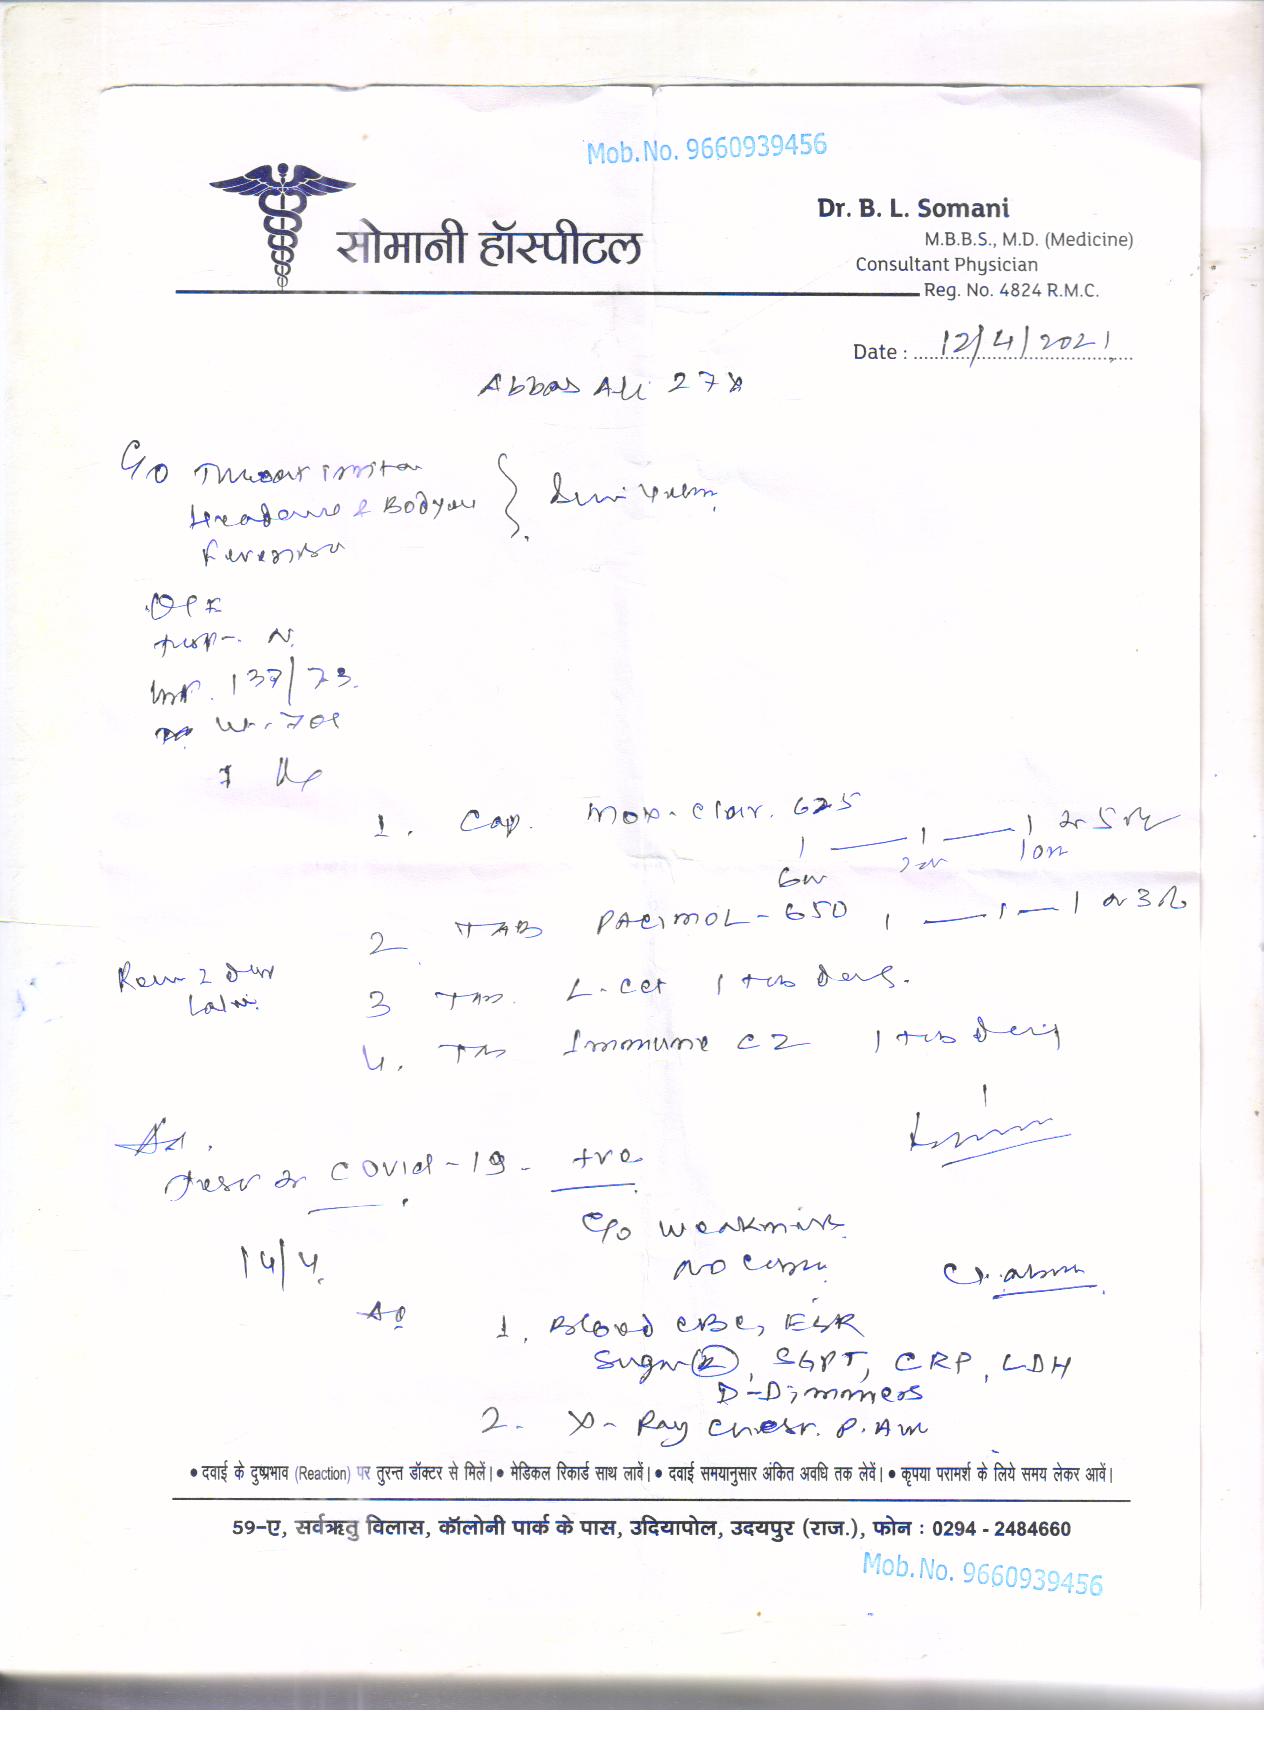 Mob.No. 9660939456
सोमानी हॉस्पीटल
Dr. B. L. Somani
M.B.B.S., M.D. (Medicine)
Consultant Physician
Reg. No. 4824 R.M.C.
Date : 12/4/2021
Abbas Ali 27
C/o Throat
Headache & Bodyache
O/E
N.
137/73.
Wt. 70
1. Cap. Mox-Clav. 625
1 — 1 — 1 5
2 TAB PACIMOL-650 1 — 1 — 1 3
3 Tab. L-cet 1 tab daily.
4. Tab Immune CZ 1 tab daily
Adv.
Covid-19 - +ve
C/o weakness
14/4.
No
Adv
1. Blood CBC, ESR
Sugar (R), SGPT, CRP, LDH
D-Dimmers
2. X-Ray Chest. P.A
• दवाई के दुष्प्रभाव (Reaction) पर तुरन्त डॉक्टर से मिलें। • मेडिकल रिकार्ड साथ लावें। • दवाई समयानुसार अंकित अवधि तक लेवें। • कृपया परामर्श के लिये समय लेकर आवें।
59-ए, सर्वऋतु विलास, कॉलोनी पार्क के पास, उदियापोल, उदयपुर (राज.), फोन : 0294 - 2484660
Mob.No. 9660939456